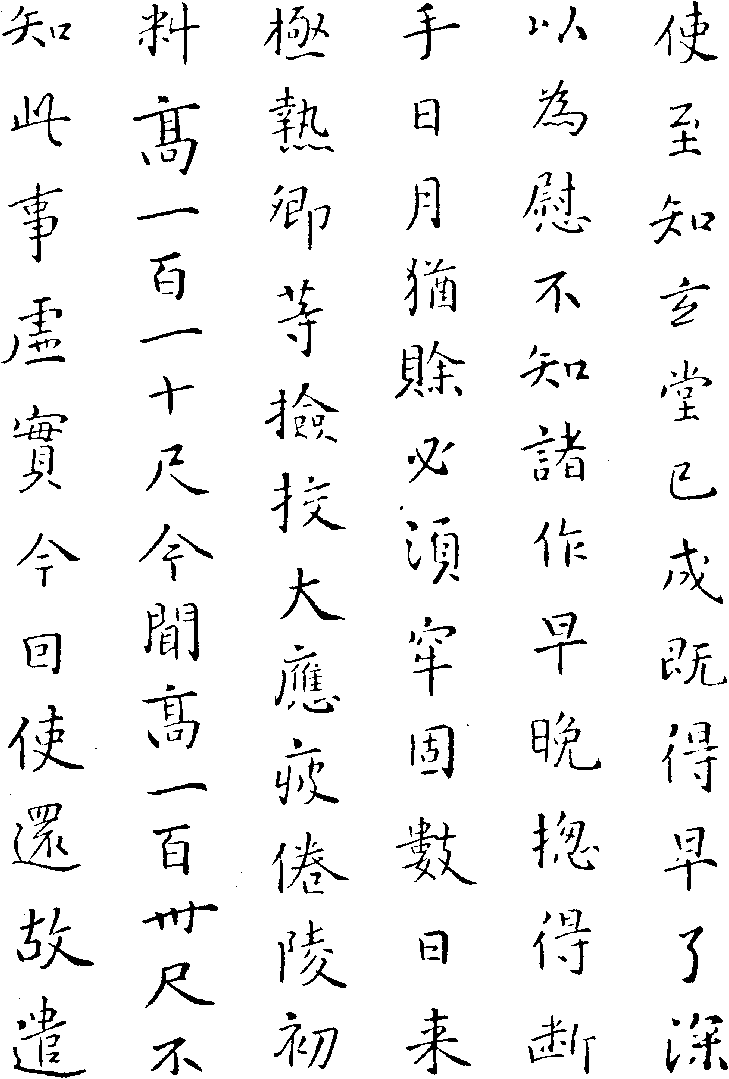 使至知玄堂已成既得早了深
以為慰不知諸作早晚揔得断
手日月猶賒必須牢固數日来
極熱卿等撿挍大應疲倦陵初
料髙一百一十尺今聞髙一百卌尺不
知此事虛實今回使還故遣